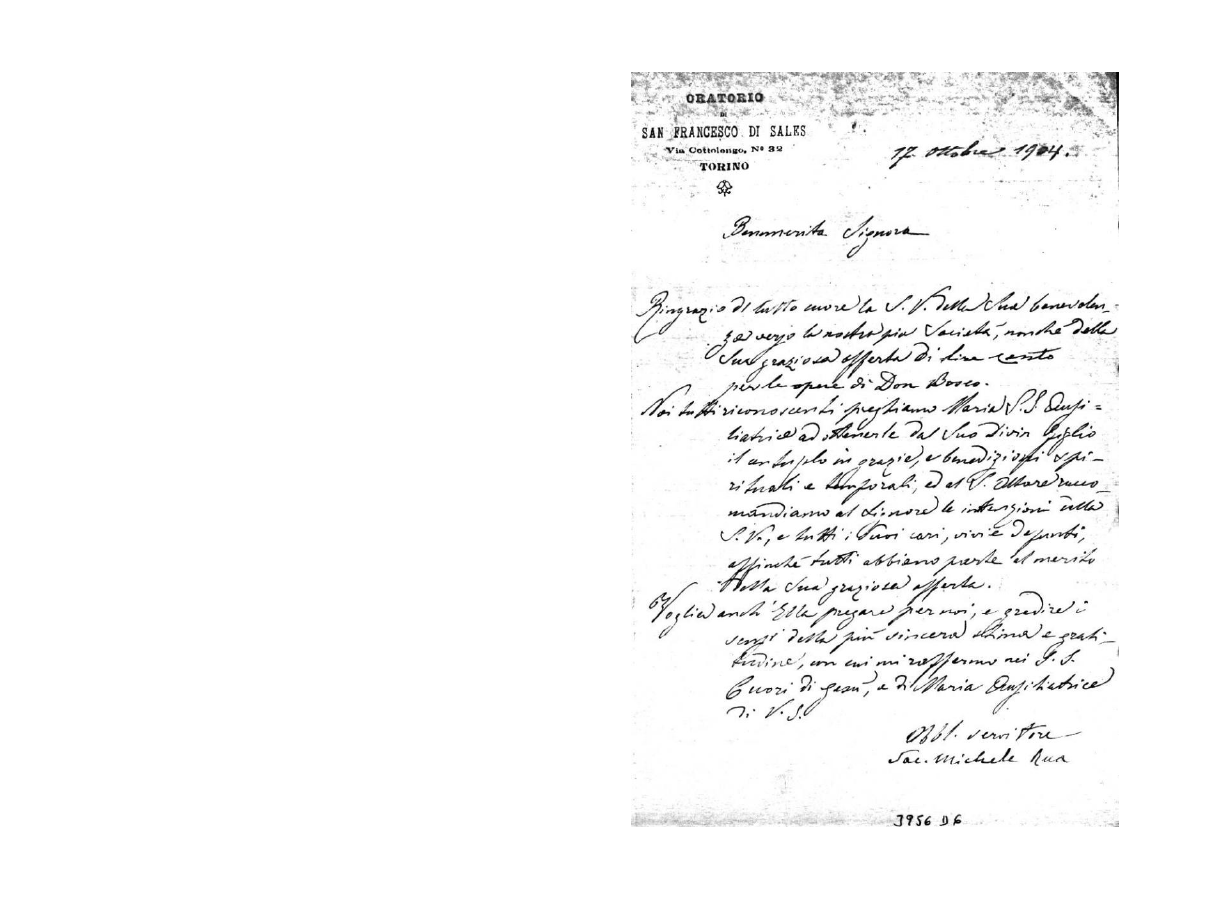 ORATORIO
DI
SAN FRANCESCO DI SALES
Via Cottolongo, Nº 32
TORINO
17 Ottobre 1904.
Benemerita Signora
Ringrazio di tutto cuore la S. V. della Sua benevolen-
za verso la nostra pia Società, nonchè della
Sua graziosa offerta di lire cento
per le opere di Don Bosco.
Noi tutti riconoscenti preghiamo Maria S.S. Ausi=
liatrice ad ottenerle dal Suo Divin Figlio
il centuplo in grazie, e benedizioni spi-
rituali e temporali, ed al S. Altare racco-
mandiamo al Signore le intenzioni della
S. V., e tutti i Suoi cari, vivi e defunti,
affinchè tutti abbiano parte al merito
della Sua graziosa offerta.
Voglia anch' Ella pregare per noi, e gradire i
sensi della più sincera stima e grati-
tudine, con cui mi raffermo nei S. S.
Cuori di Gesù, e di Maria Ausiliatrice
di V. S.
Obbl. servitore
Sac. Michele Rua
3956 D6